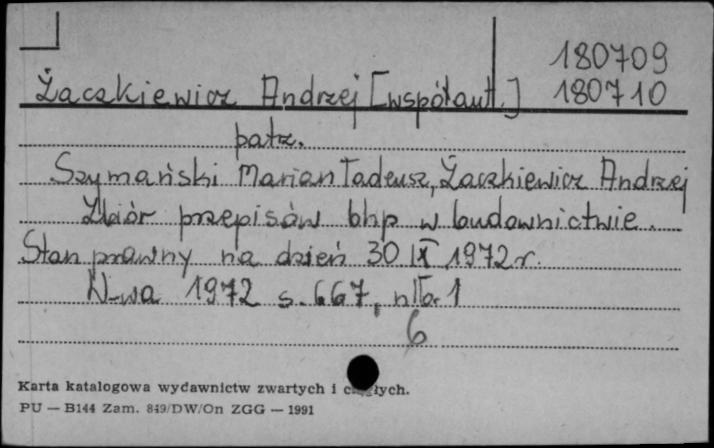 180709
Żaczkiewicz Andrzej [współaut.] 180710
patrz.
Szymański Marian Tadeusz, Żaczkiewicz Andrzej
Zbiór przepisów bhp w budownictwie.
Stan prawny na dzień 30 IX 1972 r.
W-wa 1972 s. 667, nlb. 1
6
Karta katalogowa wydawnictw zwartych i ciągłych.
PU — B144 Zam. 849/DW/On ZGG — 1991